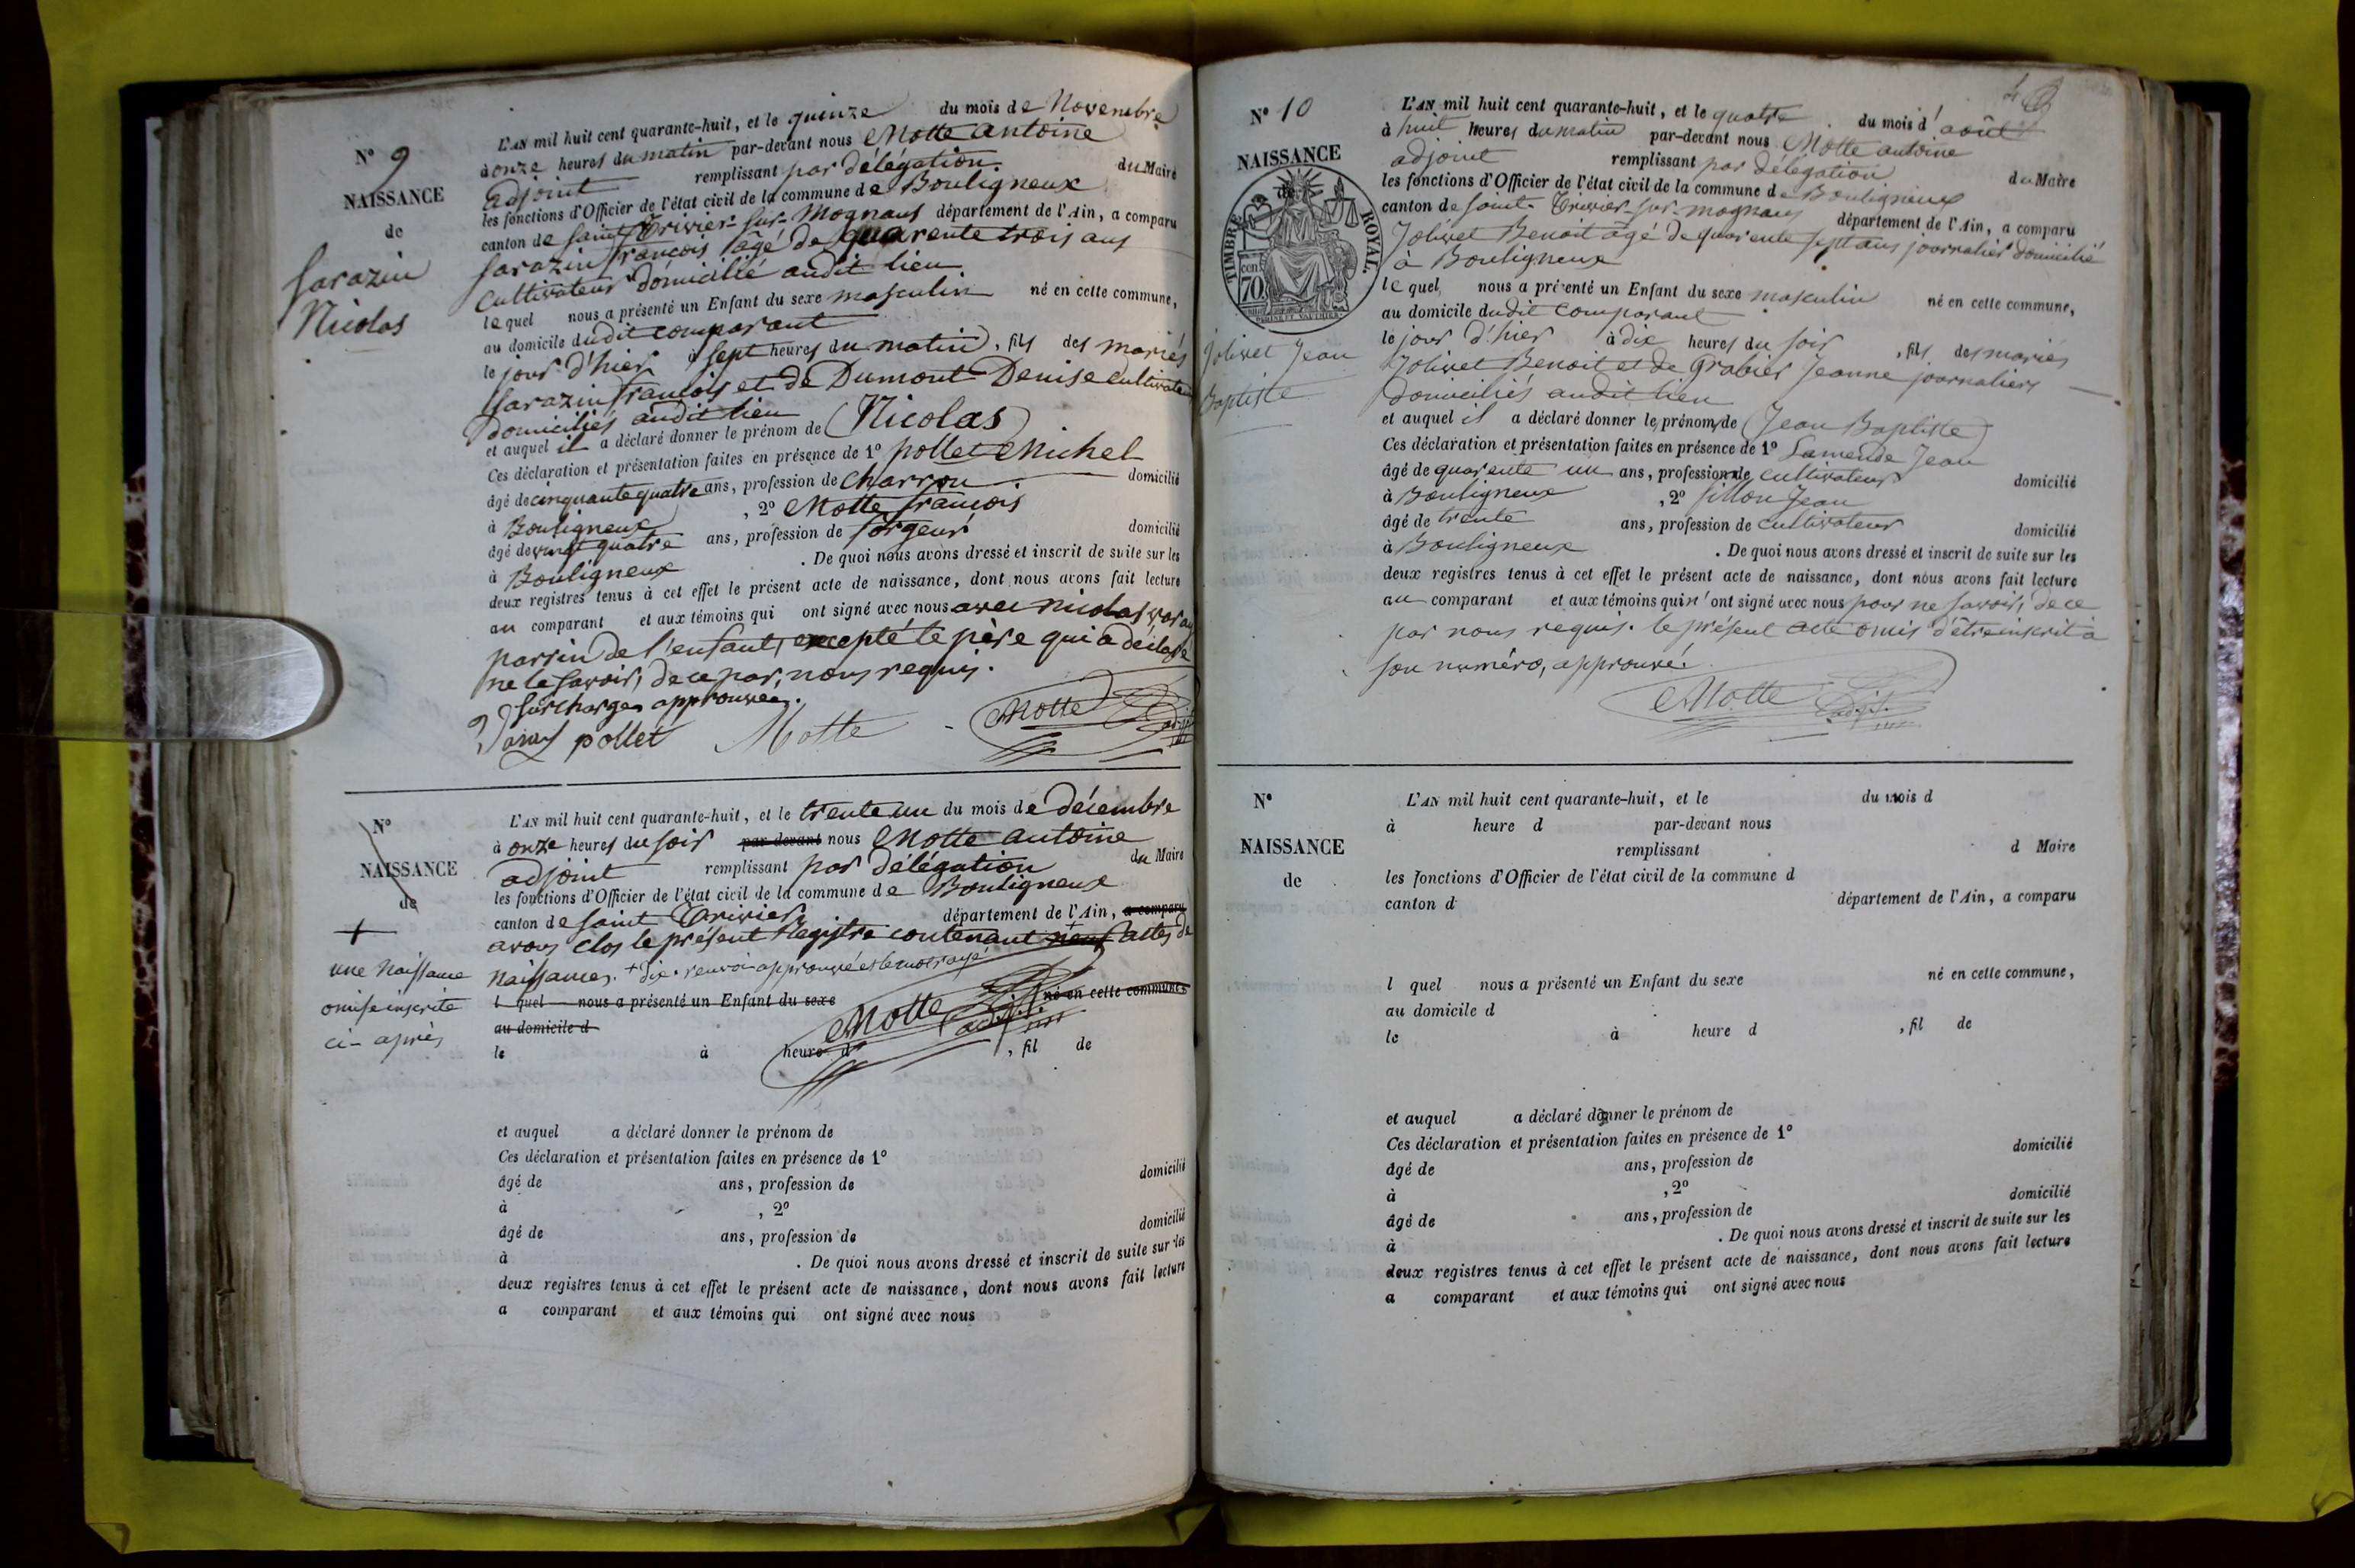 N° 9
NAISSANCE
de
Sarazin
Nicolas
L'AN mil huit cent quarante-huit, et le quinze du mois de Novembre
à onze heures du matin par-devant nous Motte antoine
adjoint remplissant par délégation du Maire
les fonctions d'Officier de l'état civil de la commune de Bouligneux
canton de saint Trivier-sur-Mognans département de l'Ain, a comparu
Sarazin françois âgé de quarente trois ans
cultivateur domicilié audit lieu
lequel nous a présenté un Enfant du sexe masculin né en cette commune,
au domicile dudit comparant
le jour d'hier à sept heures du matin, fils des mariés
Sarazin francois et de Dumont Denise cultivateurs
domiciliés audit lieu
et auquel il a déclaré donner le prénom de (Nicolas)
Ces déclaration et présentation faites en présence de 1° pollet Michel
âgé de cinquante quatre ans, profession de charron domicilié
à Bouligneux, 2° Motte francois
âgé de vingt quatre ans, profession de forgeur domicilié
à Bouligneux. De quoi nous avons dressé et inscrit de suite sur les
deux registres tenus à cet effet le présent acte de naissance, dont nous avons fait lecture
au comparant et aux témoins qui ont signé avec nous avec nicolas
parrin de l'enfant, excepté le père qui a déclaré
ne le savoir, de ce par nous requis.
surcharges approuvées.
pollet Motte Motte adjt
N°
NAISSANCE
de
+
une Naissance
omise inscrite
ci-après
L'AN mil huit cent quarante-huit, et le trente un du mois de décembre
à onze heures du soir par-devant nous Motte antoine
adjoint remplissant par délégation du Maire
les fonctions d'Officier de l'état civil de la commune de Bouligneux
canton de saint Trivier département de l'Ain, a comparu
avons clos le présent Registre contenant neuf actes de
naissances. + dix. renvoi approuvé et le mot rayé
l quel nous a présenté un Enfant du sexe né en cette commune
au domicile d
Motte adjt
le à heure d, fil de
et auquel a déclaré donner le prénom de
Ces déclaration et présentation faites en présence de 1°
âgé de ans, profession de domicilié
à, 2°
âgé de ans, profession de domicilié
à. De quoi nous avons dressé et inscrit de suite sur les
deux registres tenus à cet effet le présent acte de naissance, dont nous avons fait lecture
a comparant et aux témoins qui ont signé avec nous
N° 10
NAISSANCE
de
TIMBRE ROYAL.
70 cen.
Jolivet Jean
Baptiste
L'AN mil huit cent quarante-huit, et le quatre du mois d'août
à huit heures du matin par-devant nous Motte antoine
adjoint remplissant par délégation du Maire
les fonctions d'Officier de l'état civil de la commune de Bouligneux
canton de saint-Trivier-sur-mognans département de l'Ain, a comparu
Jolivet Benoit agé de quarente sept ans journalier domicilié
à Bouligneux
lequel nous a présenté un Enfant du sexe masculin né en cette commune,
au domicile dudit comparant
le jour d'hier à dix heures du soir, fils des mariés
Jolivet Benoit et de Grabier Jeanne journaliers
domiciliés audit lieu
et auquel il a déclaré donner le prénom de (Jean Baptiste)
Ces déclaration et présentation faites en présence de 1° Lamende Jean
âgé de quarente un ans, profession de cultivateur domicilié
à Bouligneux, 2° fillon Jean
âgé de trente ans, profession de cultivateur domicilié
à Bouligneux. De quoi nous avons dressé et inscrit de suite sur les
deux registres tenus à cet effet le présent acte de naissance, dont nous avons fait lecture
au comparant et aux témoins qui n'ont signé avec nous pour ne savoir, de ce
par nous requis. le présent acte omis d'être inscrit à
son numéro, approuvé.
Motte adjt
N°
NAISSANCE
de
L'AN mil huit cent quarante-huit, et le du mois d
à heure d par-devant nous
remplissant d Maire
les fonctions d'Officier de l'état civil de la commune d
canton d département de l'Ain, a comparu
l quel nous a présenté un Enfant du sexe né en cette commune,
au domicile d
le à heure d, fil de
et auquel a déclaré donner le prénom de
Ces déclaration et présentation faites en présence de 1°
âgé de ans, profession de domicilié
à, 2°
âgé de ans, profession de domicilié
à. De quoi nous avons dressé et inscrit de suite sur les
deux registres tenus à cet effet le présent acte de naissance, dont nous avons fait lecture
a comparant et aux témoins qui ont signé avec nous